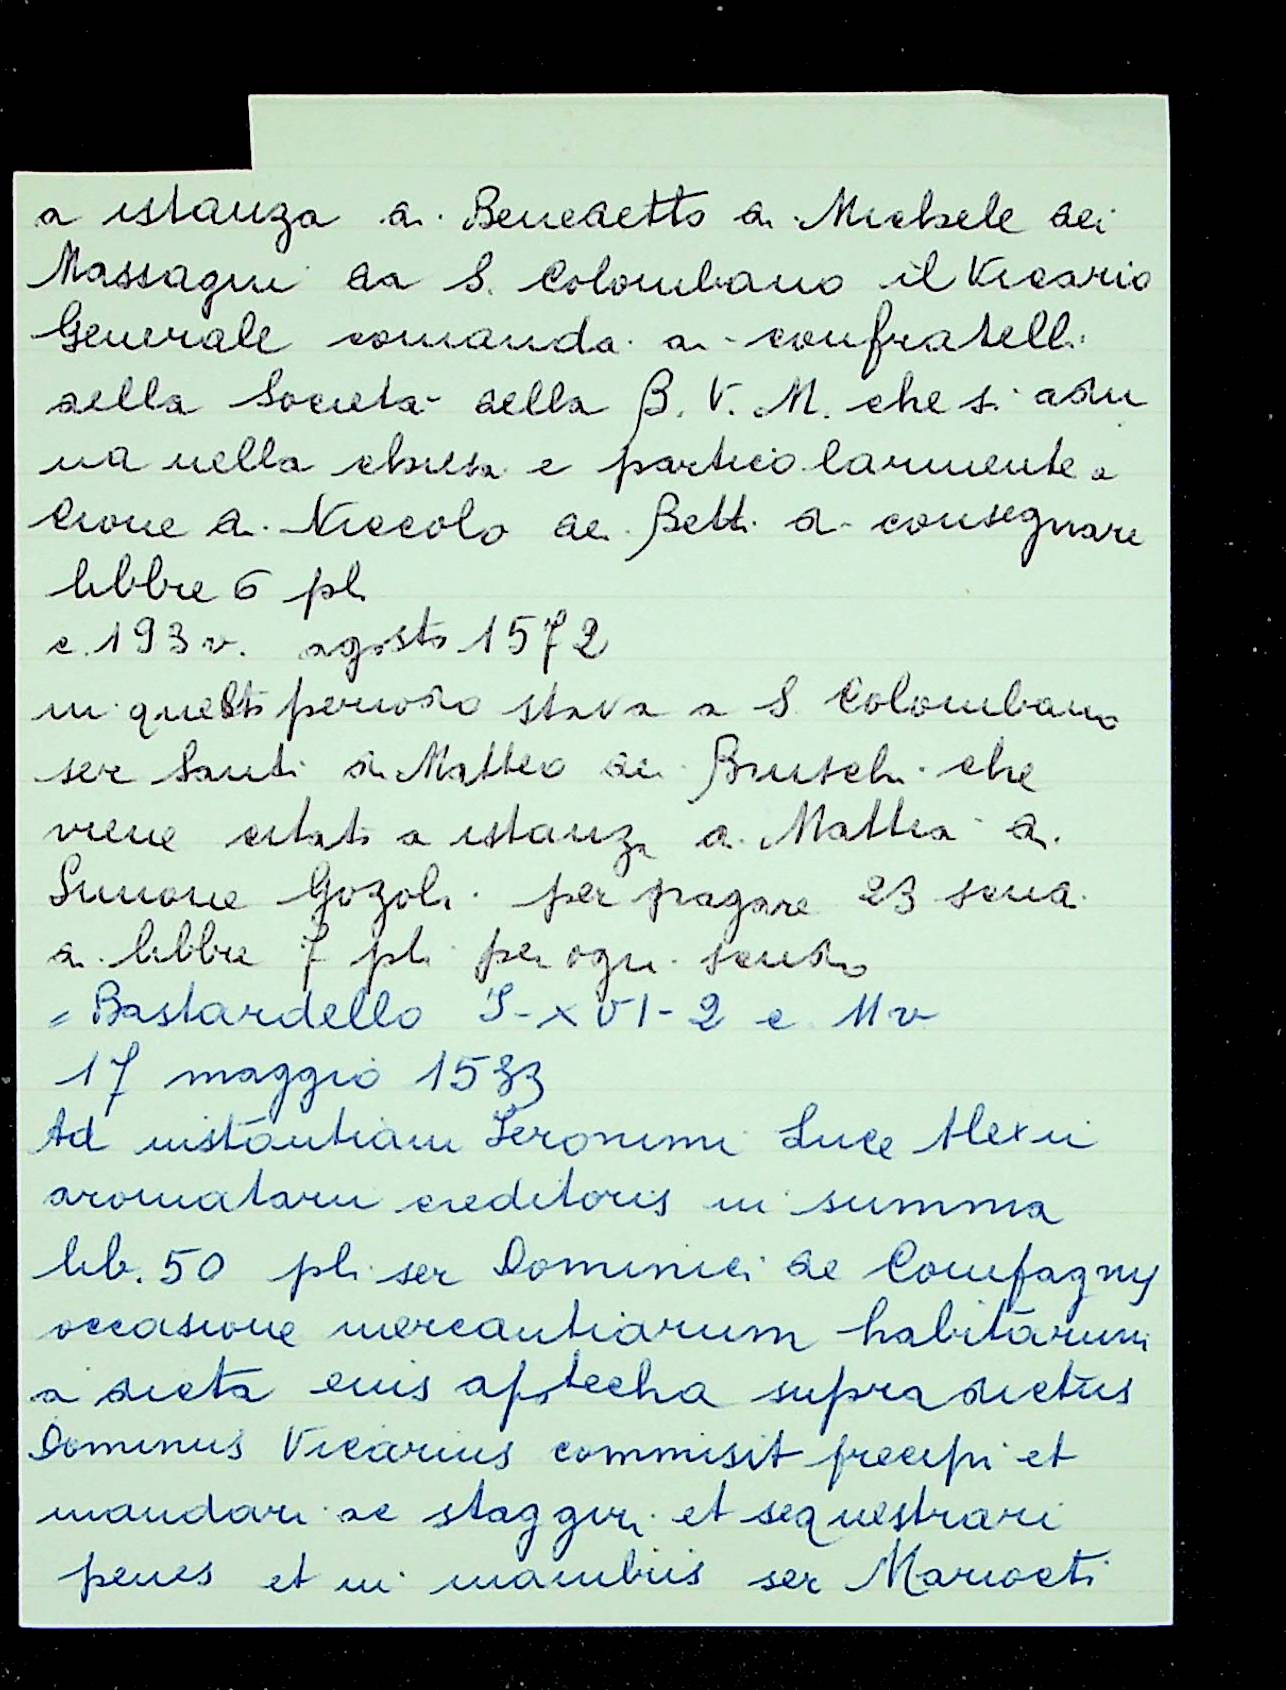 a istanza di Benedetto di Michele dei
Massagni da S. Colombano il Vicario
Generale comanda ai confratelli
della Società della B. V. M. che si adu
na nella chiesa e particolarmente a
Cione di Niccolo dei Betti di consegnare
libbre 6 pli
c. 193 v. agosto 1572
in questo periodo stava a S. Colombano
ser Santi di Matteo dei Bruschi che
viene citato a istanza di Mattia di
Simone Gozoli per pagare 23 scudi
a libbre 7 pli per ogni scudo
= Bastardello S-XVI-2 c. 11 v
17 maggio 1533
Ad instantiam Ieronimi Luce Alexii
aromatarii creditoris in summa
lib. 50 pli ser Dominici de Compagny
occasione mercantiarum habitarum
a dicta eius apotecha supradictus
Dominus Vicarius commisit precipi et
mandari ac staggiri et sequestrari
penes et in manibus ser Mariocti